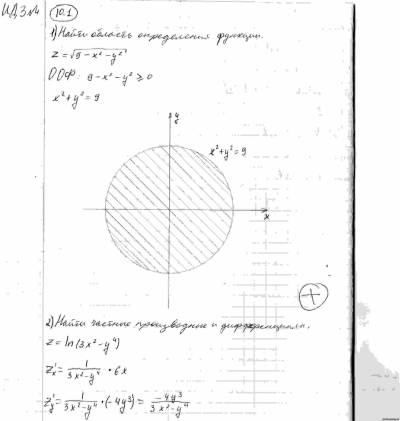 ИДЗ №4 10.1
1) Найти область определения функции.
z = √9 - x² - y²
ООФ: 9 - x² - y² ≥ 0
x² + y² = 9
y
x² + y² = 9
x
+
2) Найти частные производные и дифференциалы.
z = ln(3x² - y⁴)
z'x = 1/(3x² - y⁴) · 6x
z'y = 1/(3x² - y⁴) · (-4y³) = -4y³/(3x² - y⁴)